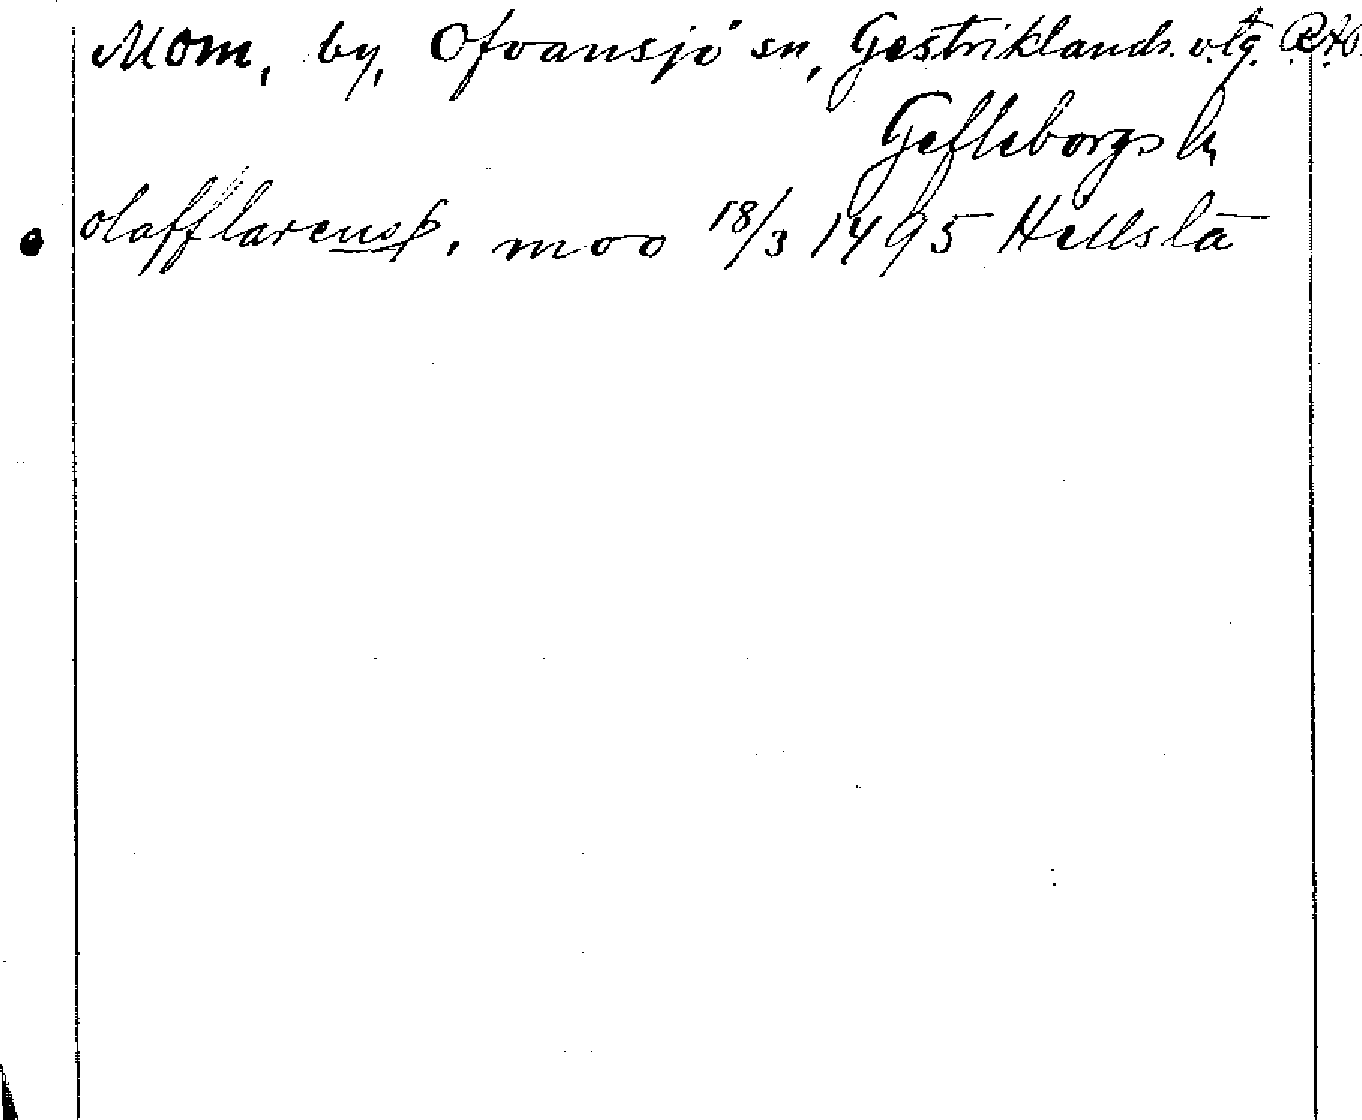 Mom, by, Ofvansjö sn, Gestriklands v.tg.
Gefleborgs ln
olafflarens, moo 18/3 1495 Hellsta